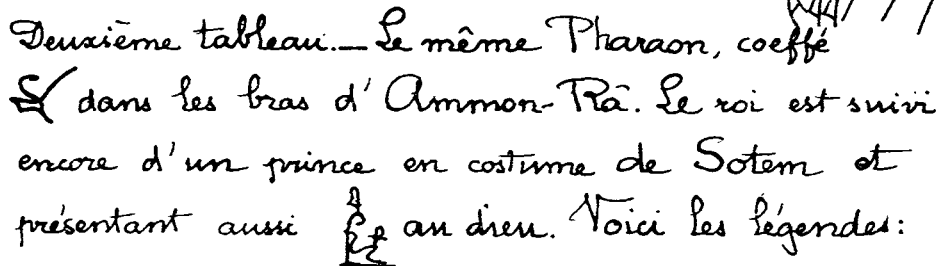 Deuxième tableau.— Le même Pharaon, coeffé
dans les bras d'Ammon-Râ. Le roi est suivi
encore d'un prince en costume de Sotem et
présentant aussi au dieu. Voici les légendes: